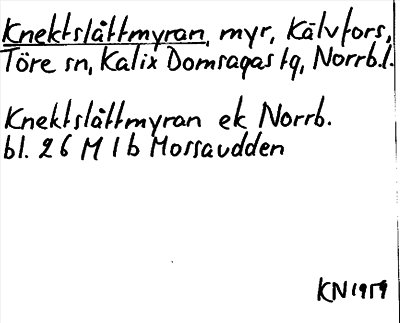 Knektslåttmyran, myr, Kälvfors,
Töre sn, Kalix Domsagas tg, Norrb.l.
Knektslåttmyran ek Norrb.
bl. 26 M 1 b Mossaudden
KN 1959